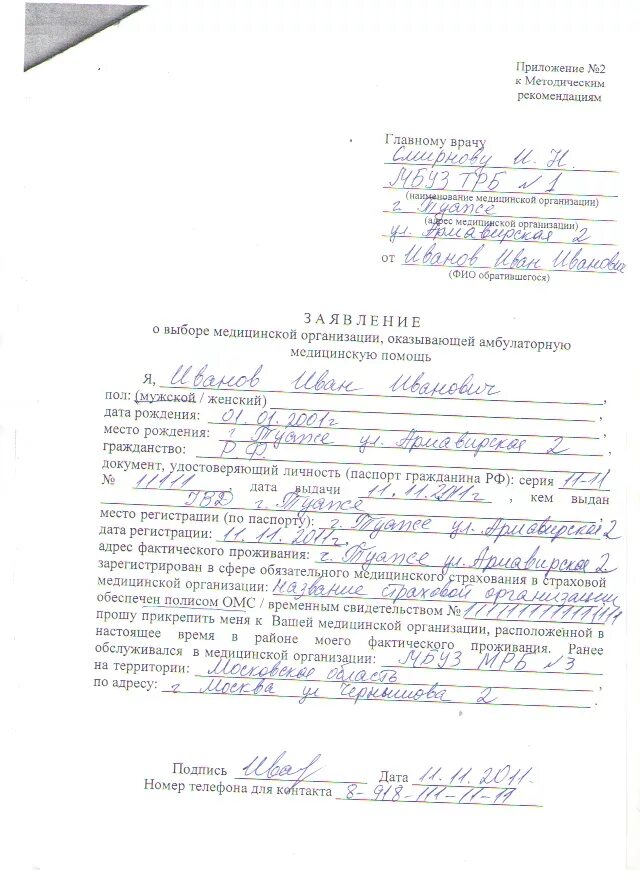 Приложение №2
к Методическим
рекомендациям
Главному врачу
Смирнову И. Н.
МБУЗ ТРБ №1
(наименование медицинской организации)
г Туапсе
(адрес медицинской организации)
ул. Армавирская 2
от Иванов Иван Иванович
(ФИО обратившегося)
ЗАЯВЛЕНИЕ
о выборе медицинской организации, оказывающей амбулаторную
медицинскую помощь
Я, Иванов Иван Иванович,
пол: (мужской / женский)
дата рождения: 01.01.2001г,
место рождения: г Туапсе ул. Армавирская 2,
гражданство: РФ,
документ, удостоверяющий личность (паспорт гражданина РФ): серия 11-11
№ 11111 дата выдачи 11.11.2011г, кем выдан
г. Туапсе
место регистрации (по паспорту): г. Туапсе ул. Армавирская 2
дата регистрации: 11.11.2011г,
адрес фактического проживания: г. Туапсе ул. Армавирская 2.
зарегистрирован в сфере обязательного медицинского страхования в страховой
медицинской организации: название страховой организации
обеспечен полисом ОМС / временным свидетельством №
прошу прикрепить меня к Вашей медицинской организации, расположенной в
настоящее время в районе моего фактического проживания. Ранее
обслуживался в медицинской организации: МБУЗ МРБ №3
на территории: Московская область,
по адресу: г Москва ул Чернышова 2.
Подпись Дата 11.11.2011.
Номер телефона для контакта 8-918-111-11-11